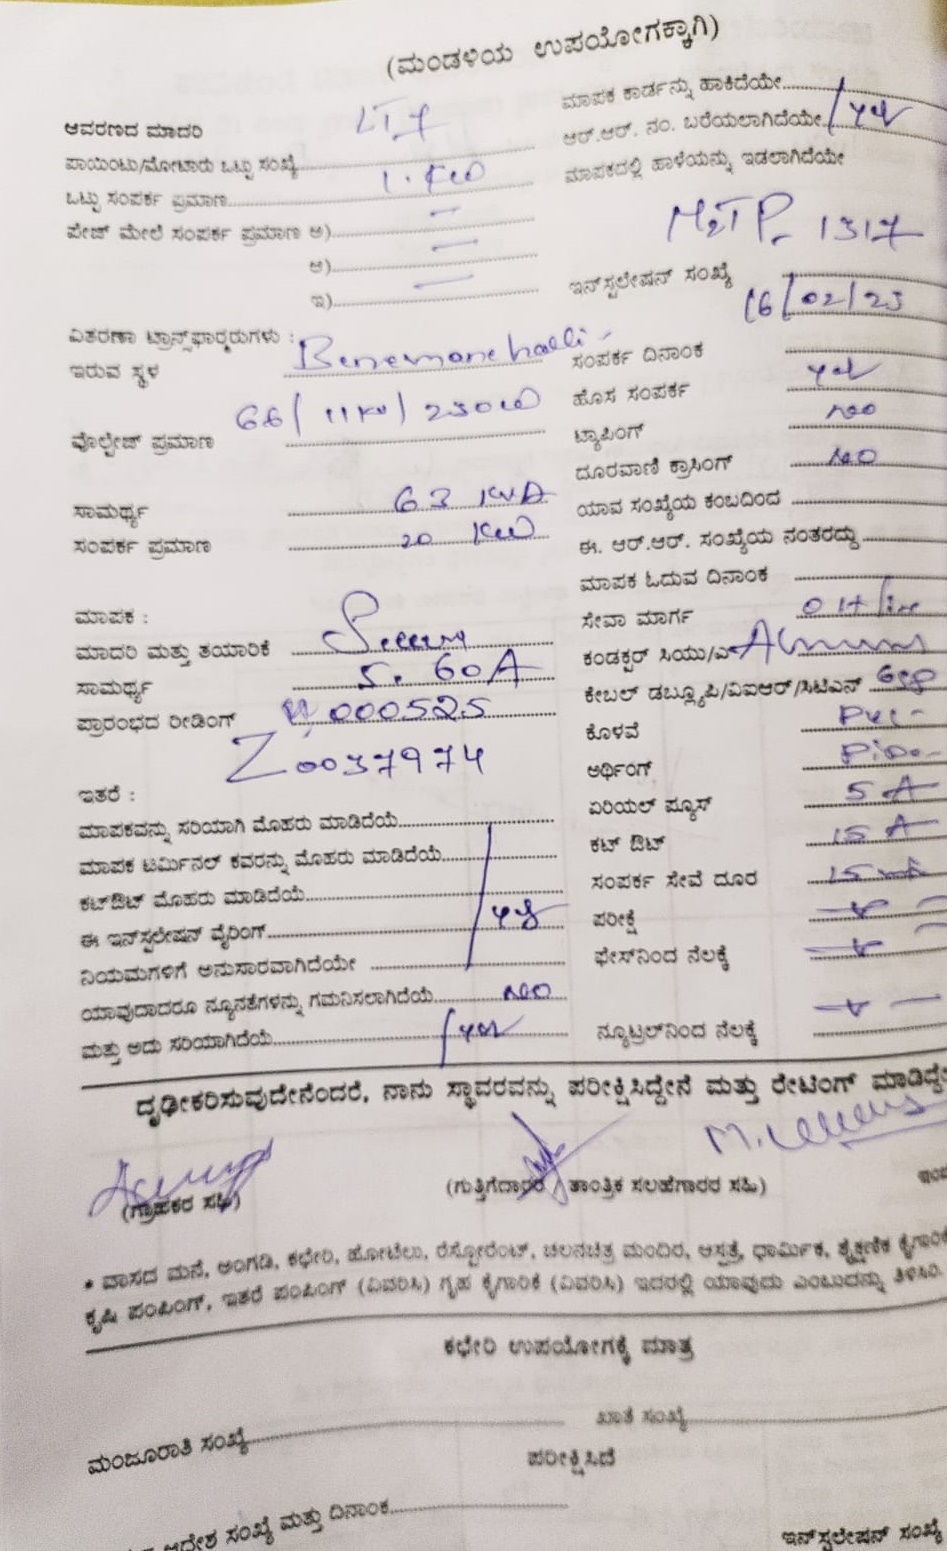 (ಮಂಡಳಿಯ ಉಪಯೋಗಕ್ಕಾಗಿ)
ಆವರಣದ ಮಾದರಿ LT7
ಪಾಯಿಂಟು/ಮೋಟಾರು ಒಟ್ಟು ಸಂಖ್ಯೆ
ಒಟ್ಟು ಸಂಪರ್ಕ ಪ್ರಮಾಣ 1. KW
ಪೇಜ್ ಮೇಲೆ ಸಂಪರ್ಕ ಪ್ರಮಾಣ ಅ) —
ಆ) —
ಇ) —
ವಿತರಣಾ ಟ್ರಾನ್ಸ್‌ಫಾರ್ಮರುಗಳು :
ಇರುವ ಸ್ಥಳ
66/11KV/250
ವೊಲ್ಟೇಜ್ ಪ್ರಮಾಣ
ಸಾಮರ್ಥ್ಯ 63 KVA
ಸಂಪರ್ಕ ಪ್ರಮಾಣ 20 KW
ಮಾಪಕ :
ಮಾದರಿ ಮತ್ತು ತಯಾರಿಕೆ
ಸಾಮರ್ಥ್ಯ 5. 60A
ಪ್ರಾರಂಭದ ರೀಡಿಂಗ್ 000525
Z0037974
ಇತರೆ :
ಮಾಪಕವನ್ನು ಸರಿಯಾಗಿ ಮೊಹರು ಮಾಡಿದೆಯೆ
ಮಾಪಕ ಟರ್ಮಿನಲ್ ಕವರನ್ನು ಮೊಹರು ಮಾಡಿದೆಯೆ
ಕಟ್‌ಔಟ್ ಮೊಹರು ಮಾಡಿದೆಯೆ
ಈ ಇನ್‌ಸ್ಟಲೇಷನ್ ವೈರಿಂಗ್ yes
ನಿಯಮಗಳಿಗೆ ಅನುಸಾರವಾಗಿದೆಯೇ
ಯಾವುದಾದರೂ ನ್ಯೂನತೆಗಳನ್ನು ಗಮನಿಸಲಾಗಿದೆಯೆ No
ಮತ್ತು ಅದು ಸರಿಯಾಗಿದೆಯೆ yes
ಮಾಪಕ ಕಾರ್ಡನ್ನು ಹಾಕಿದೆಯೇ
ಆರ್.ಆರ್. ನಂ. ಬರೆಯಲಾಗಿದೆಯೇ yes
ಮಾಪಕದಲ್ಲಿ ಹಾಳೆಯನ್ನು ಇಡಲಾಗಿದೆಯೇ
M2TP- 1317
ಇನ್‌ಸ್ಟಲೇಷನ್ ಸಂಖ್ಯೆ
16/02/23
ಸಂಪರ್ಕ ದಿನಾಂಕ
ಹೊಸ ಸಂಪರ್ಕ yes
ಟ್ಯಾಪಿಂಗ್ No
ದೂರವಾಣಿ ಕ್ರಾಸಿಂಗ್ No
ಯಾವ ಸಂಖ್ಯೆಯ ಕಂಬದಿಂದ
ಈ. ಆರ್.ಆರ್. ಸಂಖ್ಯೆಯ ನಂತರದ್ದು
ಮಾಪಕ ಓದುವ ದಿನಾಂಕ
ಸೇವಾ ಮಾರ್ಗ OH line
ಕಂಡಕ್ಟರ್ ಸಿಯು/ಎ
ಕೇಬಲ್ ಡಬ್ಲ್ಯೂಪಿ/ವಿಐಆರ್/ಸಿಟಿಎಸ್
ಕೊಳವೆ PVC-
ಅರ್ಥಿಂಗ್
ಏರಿಯಲ್ ಫ್ಯೂಸ್ 5 A
ಕಟ್ ಔಟ್ 15 A
ಸಂಪರ್ಕ ಸೇವೆ ದೂರ
ಪರೀಕ್ಷೆ
ಫೇಸ್‌ನಿಂದ ನೆಲಕ್ಕೆ
ನ್ಯೂಟ್ರಲ್‌ನಿಂದ ನೆಲಕ್ಕೆ
ದೃಢೀಕರಿಸುವುದೇನೆಂದರೆ, ನಾನು ಸ್ಥಾವರವನ್ನು ಪರೀಕ್ಷಿಸಿದ್ದೇನೆ ಮತ್ತು ರೇಟಿಂಗ್ ಮಾಡಿದ್ದೇ
(ಗ್ರಾಹಕರ ಸಹಿ) (ಗುತ್ತಿಗೆದಾರರ / ತಾಂತ್ರಿಕ ಸಲಹೆಗಾರರ ಸಹಿ)
* ವಾಸದ ಮನೆ, ಅಂಗಡಿ, ಕಛೇರಿ, ಹೋಟೆಲು, ರೆಸ್ಟೋರೆಂಟ್, ಚಲನಚಿತ್ರ ಮಂದಿರ, ಆಸ್ಪತ್ರೆ, ಧಾರ್ಮಿಕ, ಶೈಕ್ಷಣಿಕ ಕೈಗಾರಿಕೆ
ಕೃಷಿ ಪಂಪಿಂಗ್, ಇತರೆ ಪಂಪಿಂಗ್ (ವಿವರಿಸಿ) ಗೃಹ ಕೈಗಾರಿಕೆ (ವಿವರಿಸಿ) ಇದರಲ್ಲಿ ಯಾವುದು ಎಂಬುದನ್ನು ತಿಳಿಸಿರಿ.
ಕಛೇರಿ ಉಪಯೋಗಕ್ಕೆ ಮಾತ್ರ
ಮಂಜೂರಾತಿ ಸಂಖ್ಯೆ ಖಾತೆ ಸಂಖ್ಯೆ
ಪರೀಕ್ಷಿಸಿದೆ
ಆದೇಶ ಸಂಖ್ಯೆ ಮತ್ತು ದಿನಾಂಕ
ಇನ್‌ಸ್ಟಲೇಷನ್ ಸಂಖ್ಯೆ